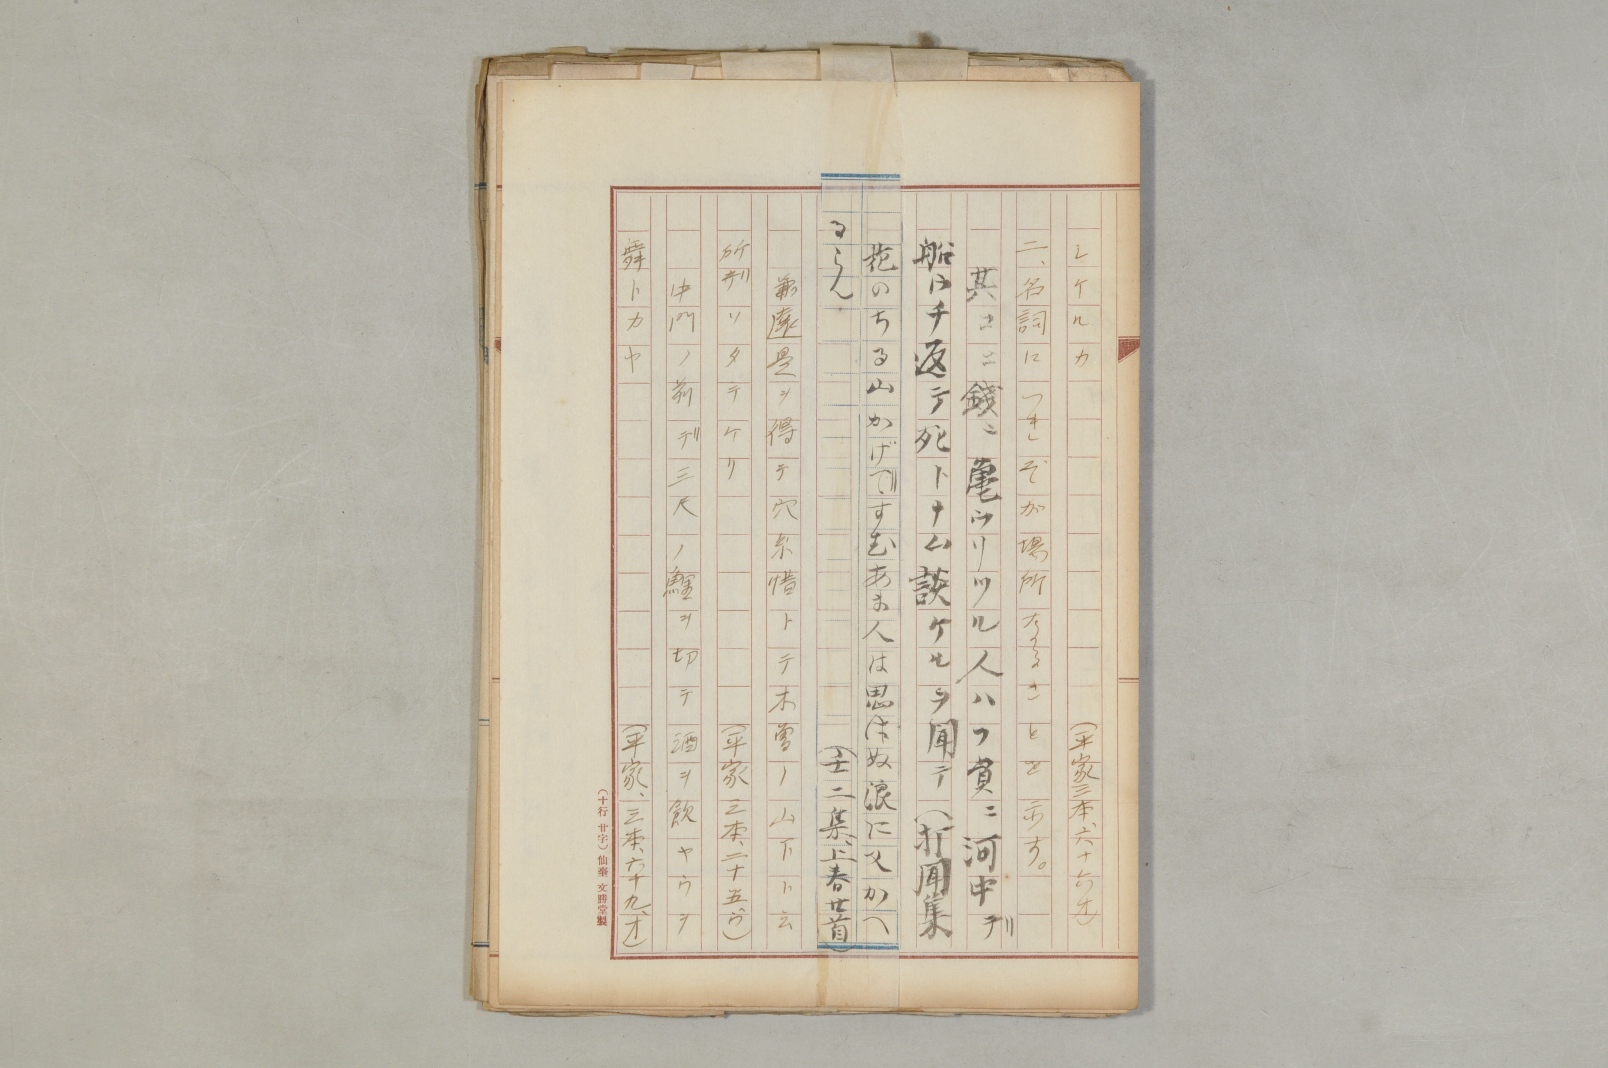 シケルカ (平家三本、六十六オ)
二、名詞につきそが場所なることを示す。
其ヨニ錢ニ亀ウリツル人ハフ貟ニ河中デ
船ウチ返テ死トナム談ケルヲ聞テ(打聞集
花のちる山かげですむあま人は思はぬ浪に又かへ
るらん (壬二集、上春廿首)
兼遠是ヲ得テ穴糸惜トテ木曽ノ山下ト云
所デソタテケリ (平家三本、二十五、ウ)
中門ノ前デ三尺ノ鯉ヲ切テ酒ヲ飲ヤウヲ
舞トカヤ (平家、三本、六十九、オ)
(十行 廿字) 仙臺 文勝堂製